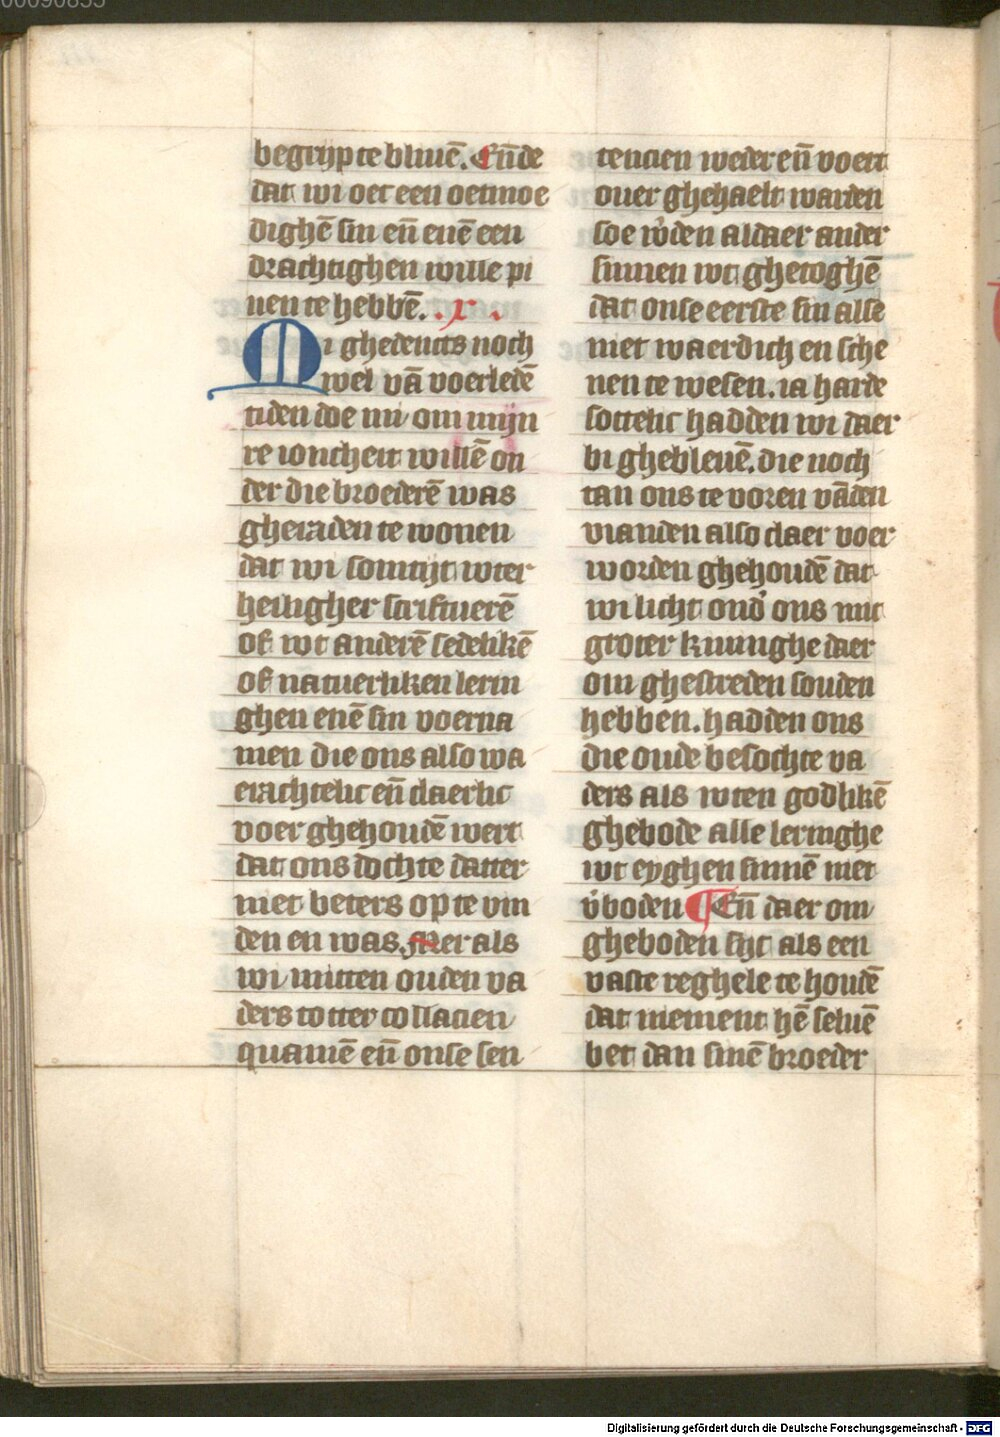 00090855
begrijp te bliuē. En̄de
dat wi oec een oetmoe
dighē sin en̄ enē een
drachtighen wille pi
nen te hebbē. .x.
Mi ghedenct noch
wel vā voerledē
tiden doe mi om mijn
re ioncheit willē on
der die broederē was
gheraden te wonen
dat wi somtijt wter
heiligher scriftuerē
of wt anderē sedelikē
of natuerliken lerin
ghen enē sin voerna
men die ons also wa
erachtelic en̄ claerlic
voer ghehoudē wert
dat ons dochte datter
niet beters op te vin
den en was. Mer als
wi mitten ouden va
ders totter collacien
quamē en̄ onse sen
tencien weder en̄ voert
ouer ghehaelt warden
soe wʼden aldaer ander
sinnen wt ghetoghē
dat onse eerste sin alse
niet waerdich en sche
nen te wesen. ia harde
sottelic hadden wi daer
bi ghebleuē. die noch
tan ons te voren vāden
vianden also claer voer
worden ghehoudē dat
wi licht ondʼ ons mit
groter kiuinghe daer
om ghestreden souden
hebben. hadden ons
die oude besochte va
ders als wten godlikē
ghebode alle leringhe
wt eyghen sinnē niet
vʼboden ¶ En̄ daer om
gheboden sijt als een
vaste reghele te houdē
dat niement hē seluē
bet dan sinē broeder
Digitalisierung gefördert durch die Deutsche Forschungsgemeinschaft - DFG